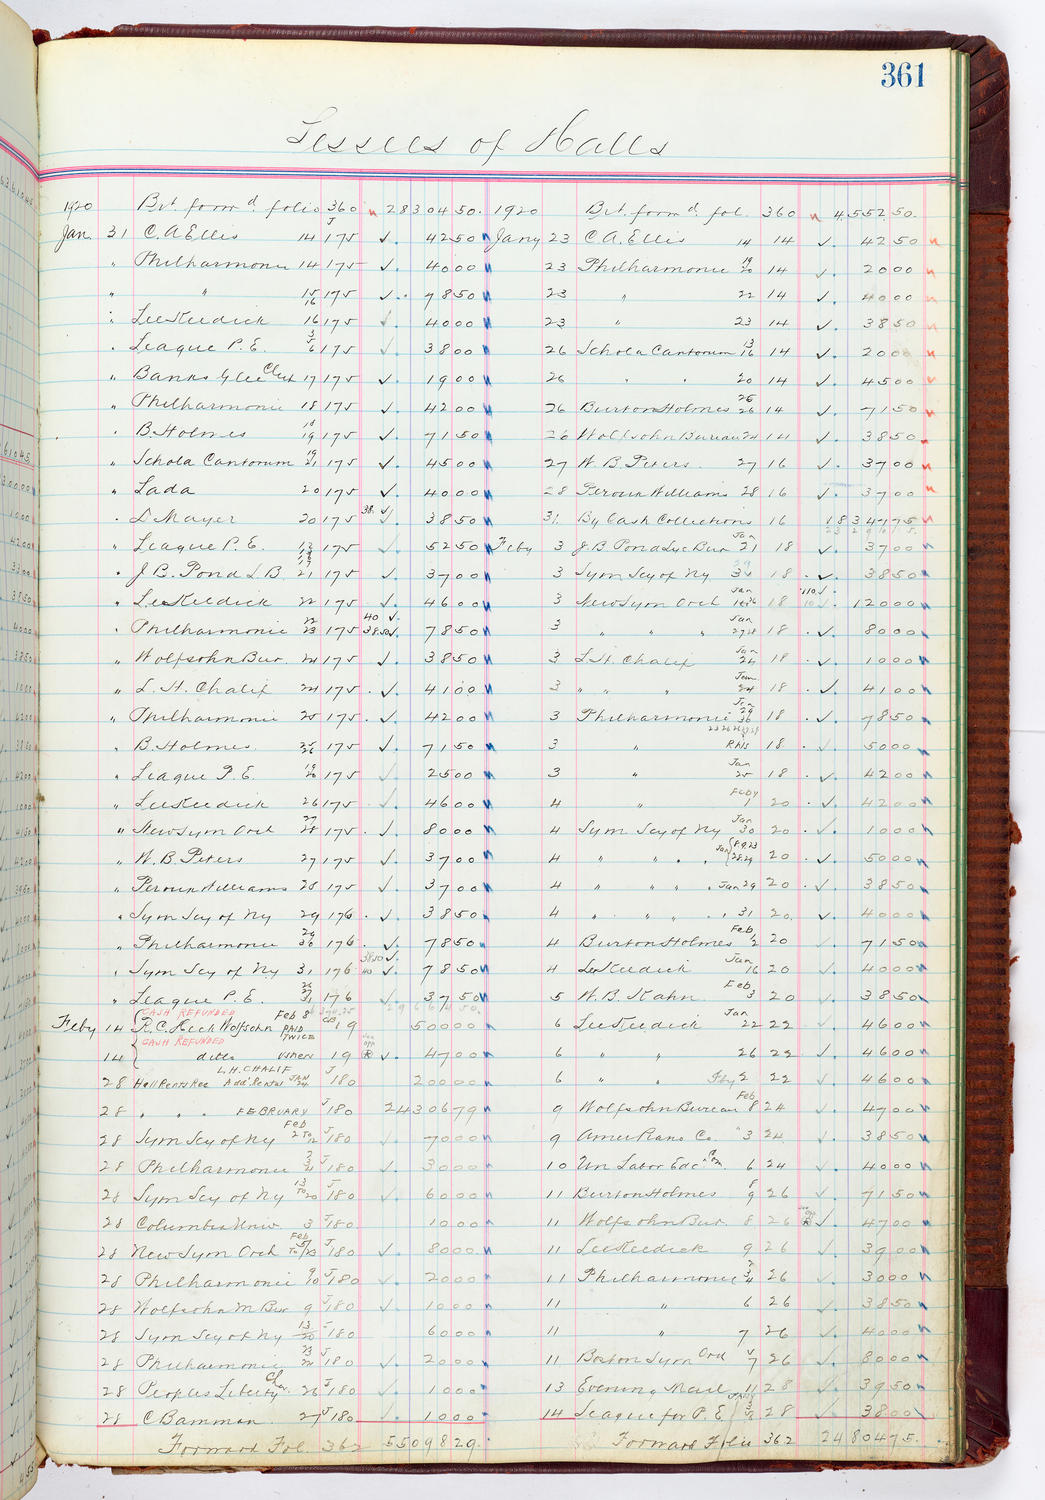 361
Lessees of Halls
1920 Bvt. forw d. folio 360 28304 50. 1920 Bvt. forw d. fol. 360 4552 50.
Jan. 31 C. A Ellis 14 175 425 0 Jany 23 C. A. Ellis 14 14 425 0
" Philharmonic 14 175 400 0 23 Philharmonic 19 20 14 200 0
" " 15 16 175 785 0 23 " 22 14 400 0
" Lee Keedick 16 175 400 0 23 " 23 14 385 0
" League P. E. 3 5 6 175 380 0 26 Schola Cantorum 13 16 14 200 0
" Banks Glee Club 17 175 190 0 26 " " 20 14 450 0
" Philharmonic 18 175 420 0 26 Burton Holmes 25 26 14 715 0
" B. Holmes 18 19 175 715 0 26 Wolfsohn Bureau 24 14 385 0
" Schola Cantorum 19 21 175 450 0 27 W. B. Peters 27 16 370 0
" Lada 20 175 400 0 28 Peroux Williams 28 16 370 0
" D Mayer 20 175 38. 385 0 31. By Cash Collections 16 18347 75
" League P. E. 175 525 0 Feby 3 J. B. Pond Lyc Bur Jan 21 18 370 0
" J. B. Pond L B. 21 175 370 0 3 Sym Scy of Ny 18 385 0
" Lee Keedick 22 175 460 0 3 New Sym Orch Jan 18 110 10 1200 0
" Philharmonic 22 23 175 40 38.50 785 0 3 " " " Jan 27 28 18 800 0
" Wolfsohn Bur. 24 175 385 0 3 L. H. Chalif Jan 24 18 100 0
" L. H. Chalif 24 175 410 0 3 " " " Jan 24 18 410 0
" Philharmonic 25 175 420 0 3 Philharmonic Jan 29 30 18 785 0
" B. Holmes 25 26 175 715 0 3 " RHS 18 500 0
" League P. E. 19 20 175 250 0 3 " Jan 25 18 420 0
" Lee Keedick 26 175 460 0 4 " Feby 1 20 420 0
" New Sym Orch 27 28 175 800 0 4 Sym Scy of Ny Jan 30 20 100 0
" W. B. Peters 27 175 370 0 4 " " " Jan 8.9.23 28.29 20 500 0
" Peroux Williams 28 175 370 0 4 " " " Jan 29 20 385 0
" Sym Scy of Ny 29 176 385 0 4 " " " 31 20. 400 0
" Philharmonic 29 30 176 785 0 4 Burton Holmes Feb, 2 20 715 0
" Sym Scy of Ny 31 176 38.50 40 785 0 4 Lee Keedick Jan 16 20 400 0
" League P. E. 31 176 375 0 5 W. B. Kahn Feb 3 20 385 0
Feby 14 CASH REFUNDED R. C. Heck Wolfsohn Feb 8 PAID TWICE CB 19 500 00 6 Lee Keedick Jan 22 22 460 0
14 CASH REFUNDED ditto USHERS 19 470 0 6 " " 26 22 460 0
28 Hall Rents Rec L. H. CHALIF Add'l Rental JAN 24 J 180 200 00 6 " " Feby 2 22 460 0
28 " " FEBRUARY J 180 24306 79 9 Wolfsohn Bureau Feb 8 24 470 0
28 Sym Scy of Ny Feb 2 To 12 J 180 700 0 9 Amer Piano Co. " 3 24 385 0
28 Philharmonic 3 4 J 180 300 0 10 Un Labor Edc'n Com 6 24 400 0
28 Sym Scy of Ny 13 To 20 J 180 600 0 11 Burton Holmes 8 9 26 715 0
28 Columbia Univ. 3 J 180 100 0 11 Wolfsohn Bur. 8 26 470 0
28 New Sym Orch Feb To J 180 800 0 11 Lee Keedick 9 26 390 0
28 Philharmonic 9 10 J 180 200 0 11 Philharmonic 3 4 26 300 0
28 Wolfsohn M. Bur 9 J 180 100 0 11 " 6 26 385 0
28 Sym Scy of Ny 13 20 J 180 600 0 11 " 7 26 400 0
28 Philharmonic 23 24 J 180 200 0 11 Boston Sym Orch 5 7 26 800 0
28 Peoples Liberty Ch. 26 J 180 100 0 13 Evening Mail 11 28 395 0
28 C Bamman 27 J 180 100 0 14 League for P. E. 28 380 0
Forward Fol. 362 55098 29. Forward Folio 362 24804 75.